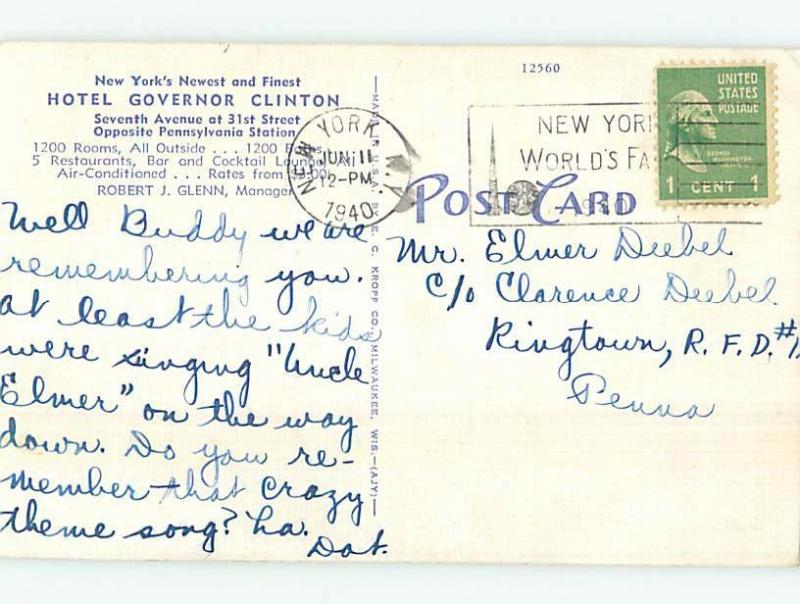 New York's Newest and Finest
HOTEL GOVERNOR CLINTON
Seventh Avenue at 31st Street
Opposite Pennsylvania Station
1200 Rooms, All Outside . . . 1200
5 Restaurants, Bar and Cocktail Lounge
Air-Conditioned . . . Rates from
ROBERT J. GLENN, Manager
Well Buddy we are
remembering you.
at least the kids
were singing "Uncle
Elmer" on the way
down. Do you re-
member that crazy
theme song? ha.
Dot.
MADE IN U.S.A. E. C. KROPP CO., MILWAUKEE, WIS.—(AJY)
NEW YORK, N.Y.
JUN 11
12-PM
1940
12560
NEW YORK
WORLD'S FA
1940
UNITED
STATES
POSTAGE
1 CENT 1
POST CARD
Mr. Elmer Deebel
c/o Clarence Deebel
Ringtown, R.F.D.#1,
Penna